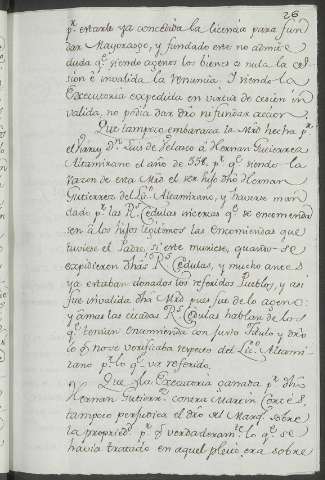 26
pr. estarle ya concedida la licencia para fun
dar Mayorasgo, y fundado este no admite
duda qe. siendo agenos los bienes es nula la ces
sión é invalida la renuncia. Y siendo la
Executoria expedida en virtud de cesión in
valida, no podia dar dro. ni fundar accion.
Que tampoco embaraza la Mrd. hecha pr.
el Virrey Dn. Luis de Velasco á Hernan Gutierrez
Altamirano el año de 558. pr. qe. siendo la
razon de esta Mrd. el ser hijo dho. Hernan
Gutierrez del Lic.o Altamirano, y haverse man
dado pr. las Rs. Cedulas insertas qe. se encomenda
sen á los hijos legitimos las Encomiendas que
tuviese el Padre, si este muriese, quando se
expidieron dhas. Rs. Cedulas, y mucho antes
ya estaban donados los referidos Pueblos, y asi
fue invalida dha. Mrd. pues fue de lo ageno:
y ámas las citadas Rs. Cedulas hablan de los
qe. tenian encomienda con justo titulo, y dro.
lo qe. no se verificaba respecto del Lic.o Altami
rano pr. lo qe. va referido.
Que la Executoria ganada pr. dho.
Hernan Gutierrz. contra Martin Cortés
tampoco perjudica el dro. del Marqs. sobre
la propriedd. pr. qe. verdaderamte. lo qe. se
havia tratado en aquel pleito, era sobre